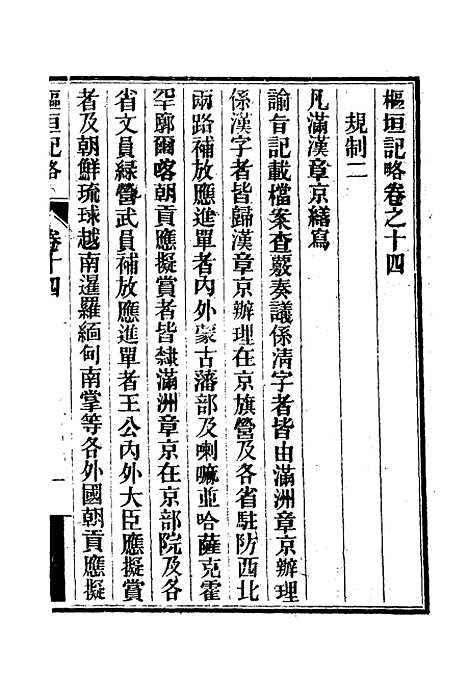 樞垣記略卷之十四
規制二
凡滿漢章京繕寫
諭旨記載檔案查覈奏議係清字者皆由滿洲章京辦理
係漢字者皆歸漢章京辦理在京旗營及各省駐防西北
兩路補放應進單者內外蒙古藩部及喇嘛並哈薩克霍
罕廓爾喀朝貢應擬賞者皆隸滿洲章京在京部院及各
省文員綠營武員補放應進單者王公內外大臣應擬賞
者及朝鮮琉球越南暹羅緬甸南掌等各外國朝貢應擬
樞垣記略
卷十四
一